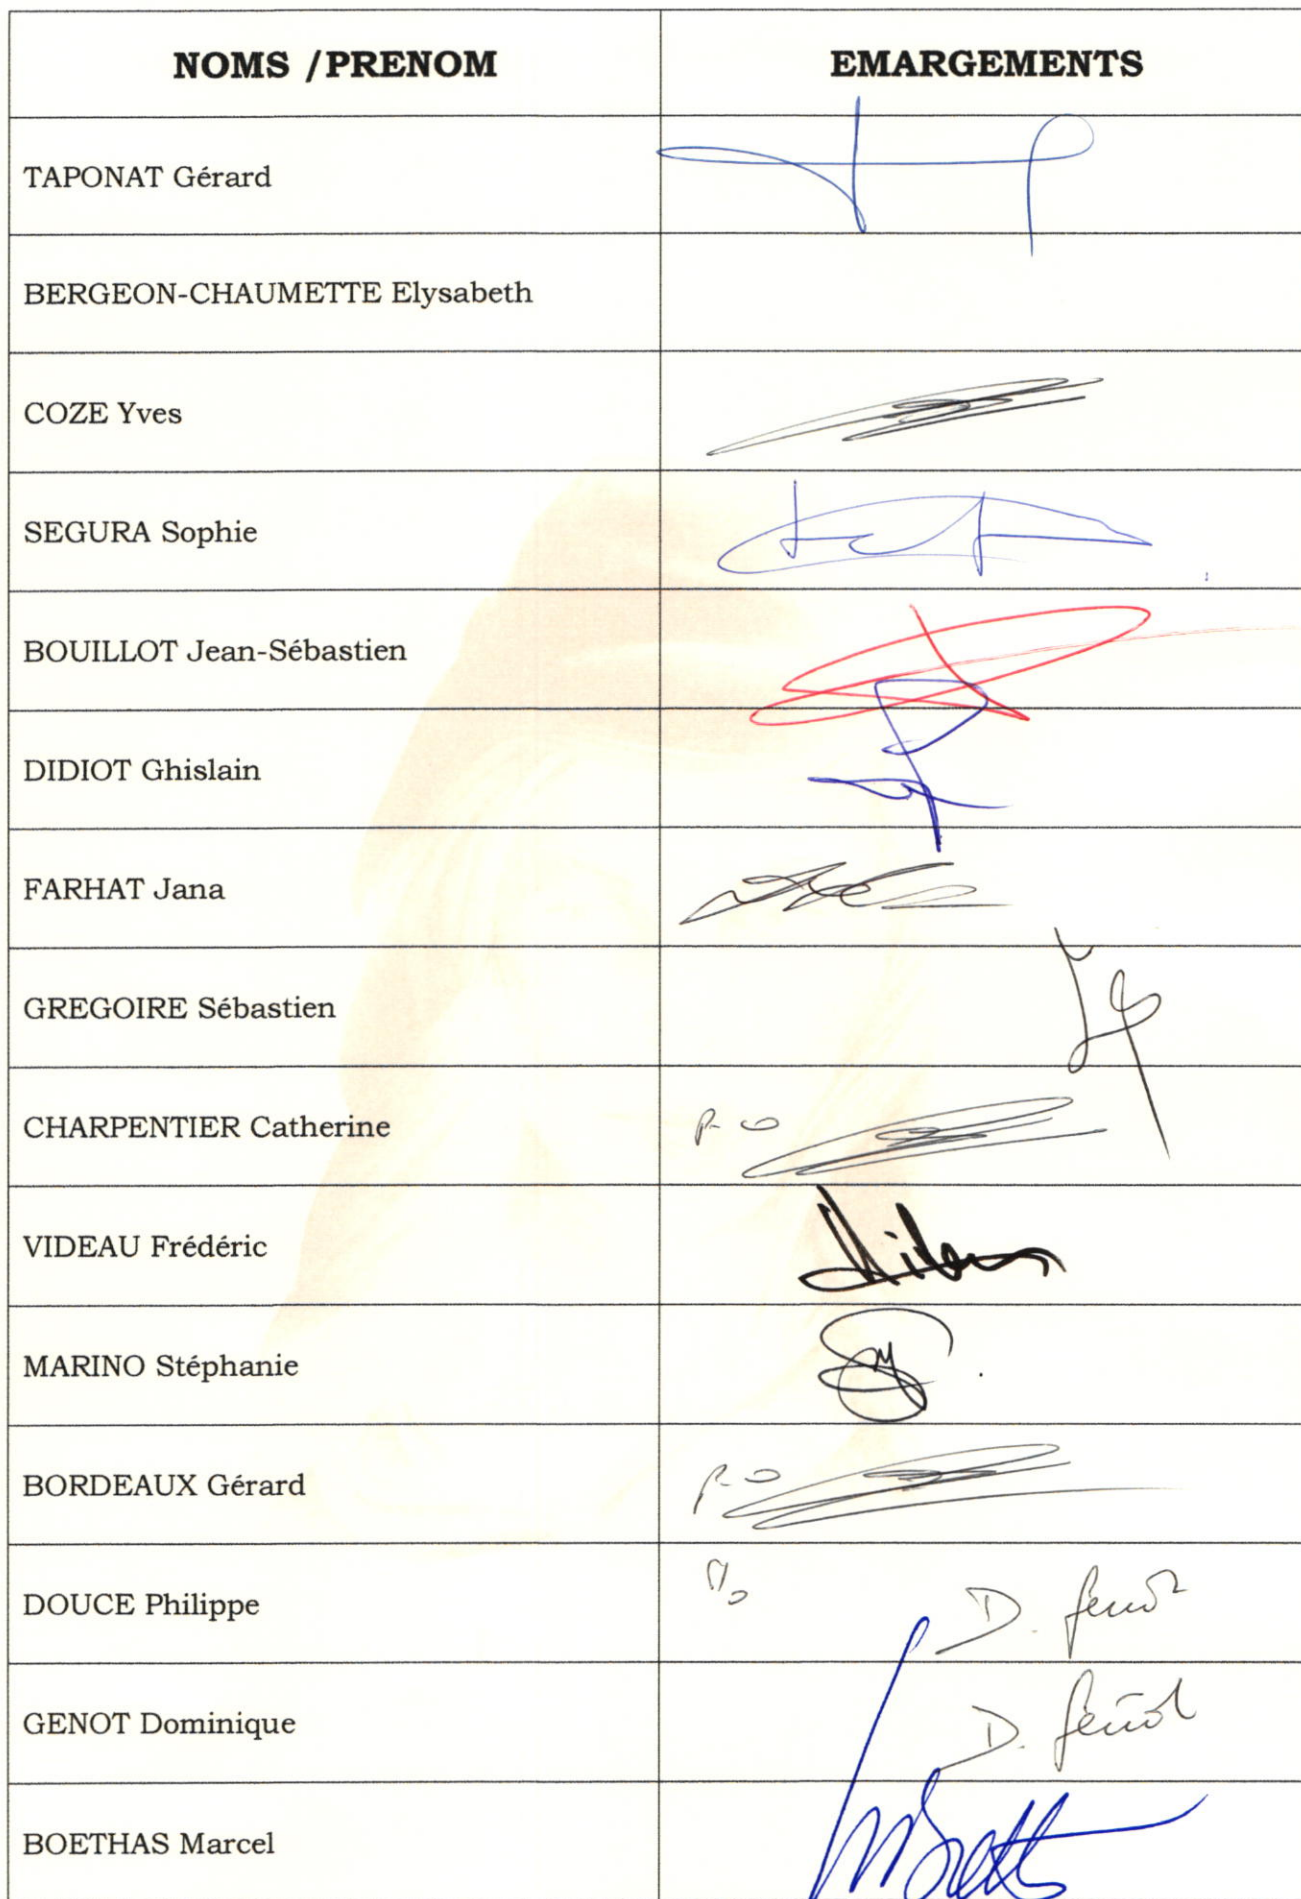 NOMS /PRENOM EMARGEMENTS
TAPONAT Gérard
BERGEON-CHAUMETTE Elysabeth
COZE Yves
SEGURA Sophie
BOUILLOT Jean-Sébastien
DIDIOT Ghislain
FARHAT Jana
GREGOIRE Sébastien
CHARPENTIER Catherine P-O
VIDEAU Frédéric
MARINO Stéphanie
BORDEAUX Gérard P-O
DOUCE Philippe P/o D. Genot
GENOT Dominique D. Genot
BOETHAS Marcel